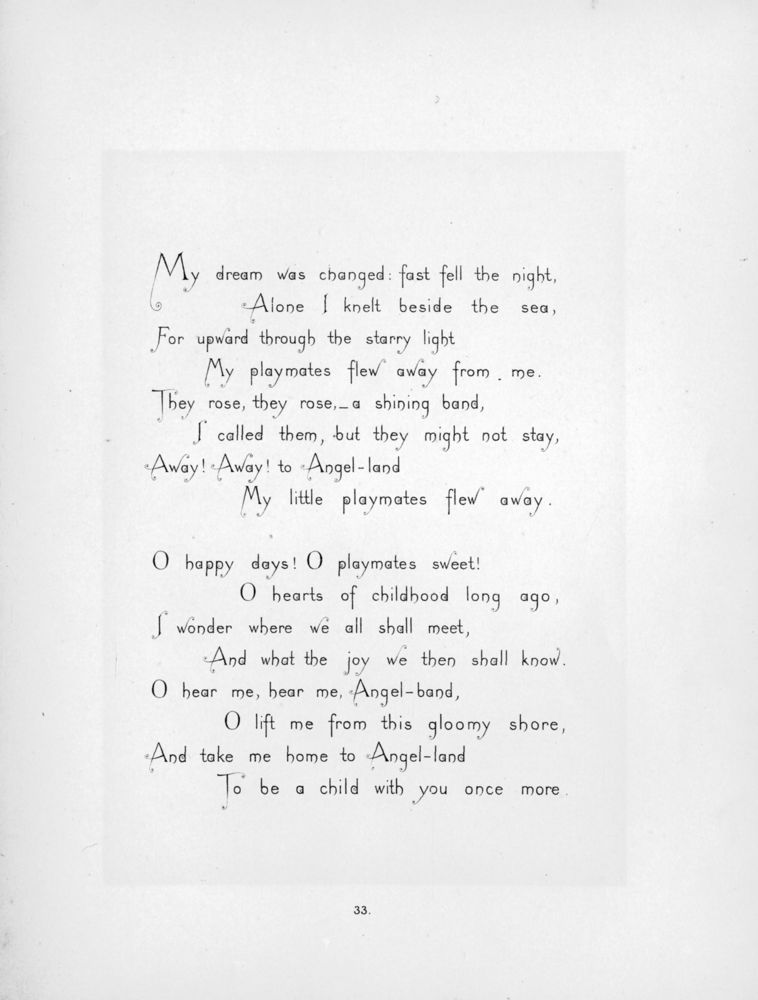 My dream was changed: fast fell the night,
Alone I knelt beside the sea,
For upward through the starry light
My playmates flew away from . me.
They rose, they rose,—a shining band,
I called them, but they might not stay,
Away! Away! to Angel-land
My little playmates flew away.
O happy days! O playmates sweet!
O hearts of childhood long ago,
I wonder where we all shall meet,
And what the joy we then shall know.
O hear me, hear me, Angel-band,
O lift me from this gloomy shore,
And take me home to Angel-land
To be a child with you once more.
33.